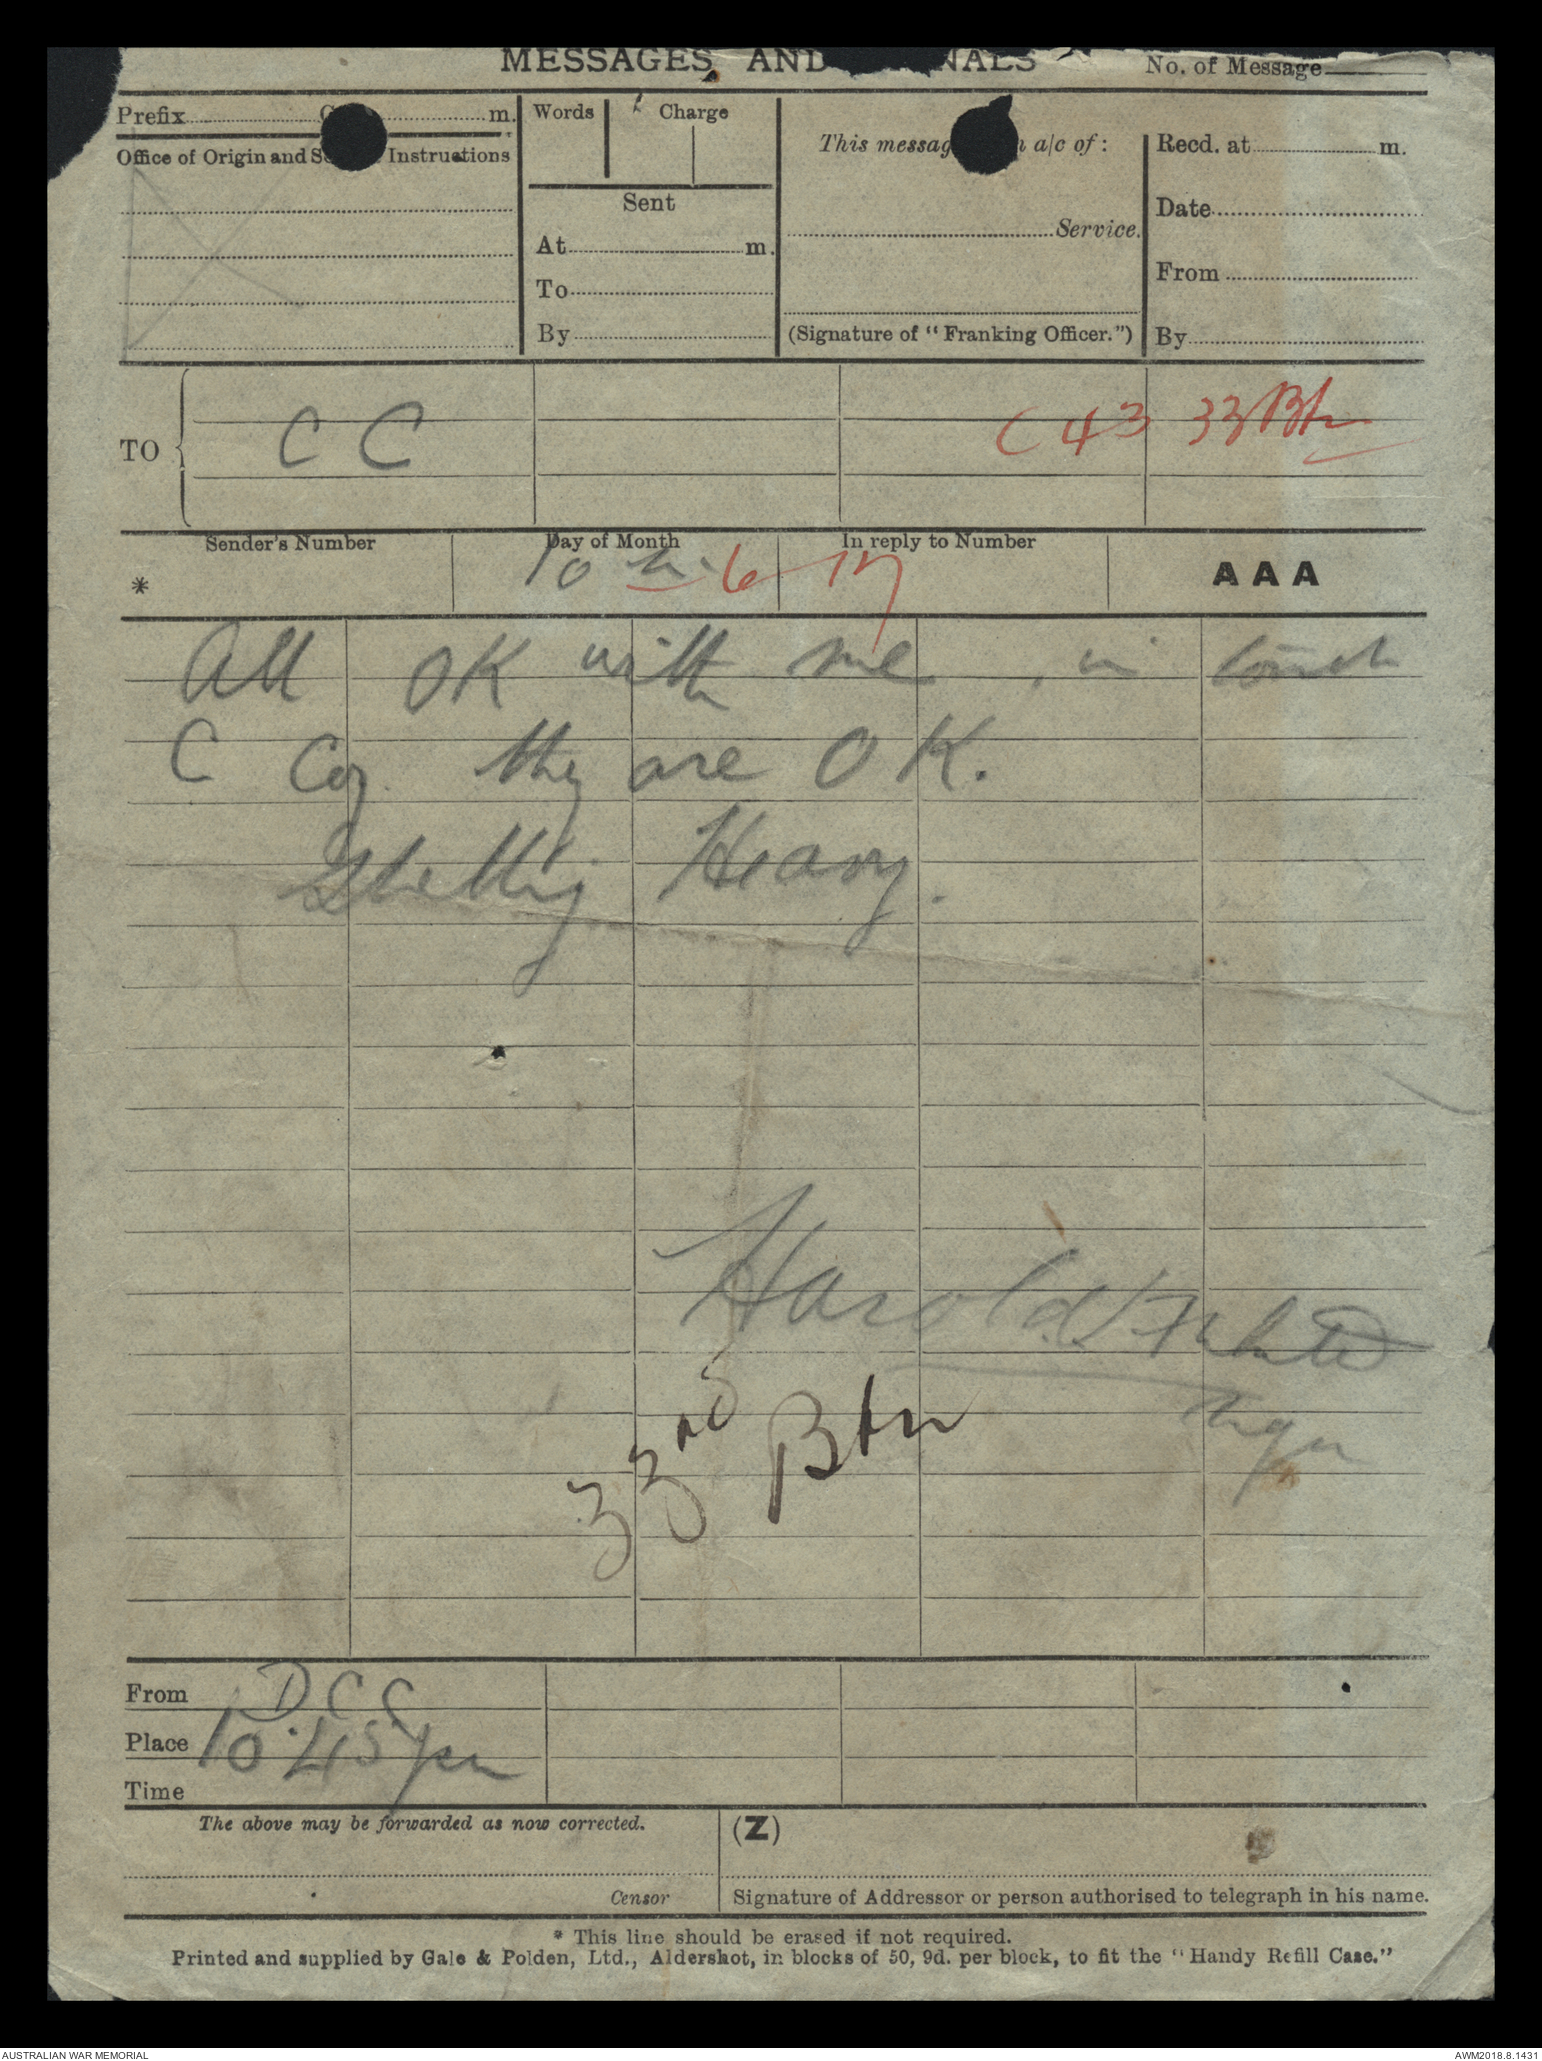 MESSAGES AND NALS
No. of Message
Prefix m.
Words Charge
This messag n a/c of :
Recd. at m.
Office of Origin and S Instructions
Sent
Date
At m.
Service.
From
To
By
(Signature of "Franking Officer.")
By
TO C C
C 43 33 Btn
Sender's Number Day of Month In reply to Number
* 10th. 6 17 AAA
All OK with me, in touch
C Coy. they are OK.
Shelling Heavy.
Harold F White
33rd Btn
From D C C
Place 10.45 pm
Time
The above may be forwarded as now corrected. (Z)
Censor Signature of Addressor or person authorised to telegraph in his name.
* This line should be erased if not required.
Printed and supplied by Gale & Polden, Ltd., Aldershot, in blocks of 50, 9d. per block, to fit the "Handy Refill Case."
AUSTRALIAN WAR MEMORIAL AWM2018.8.1431